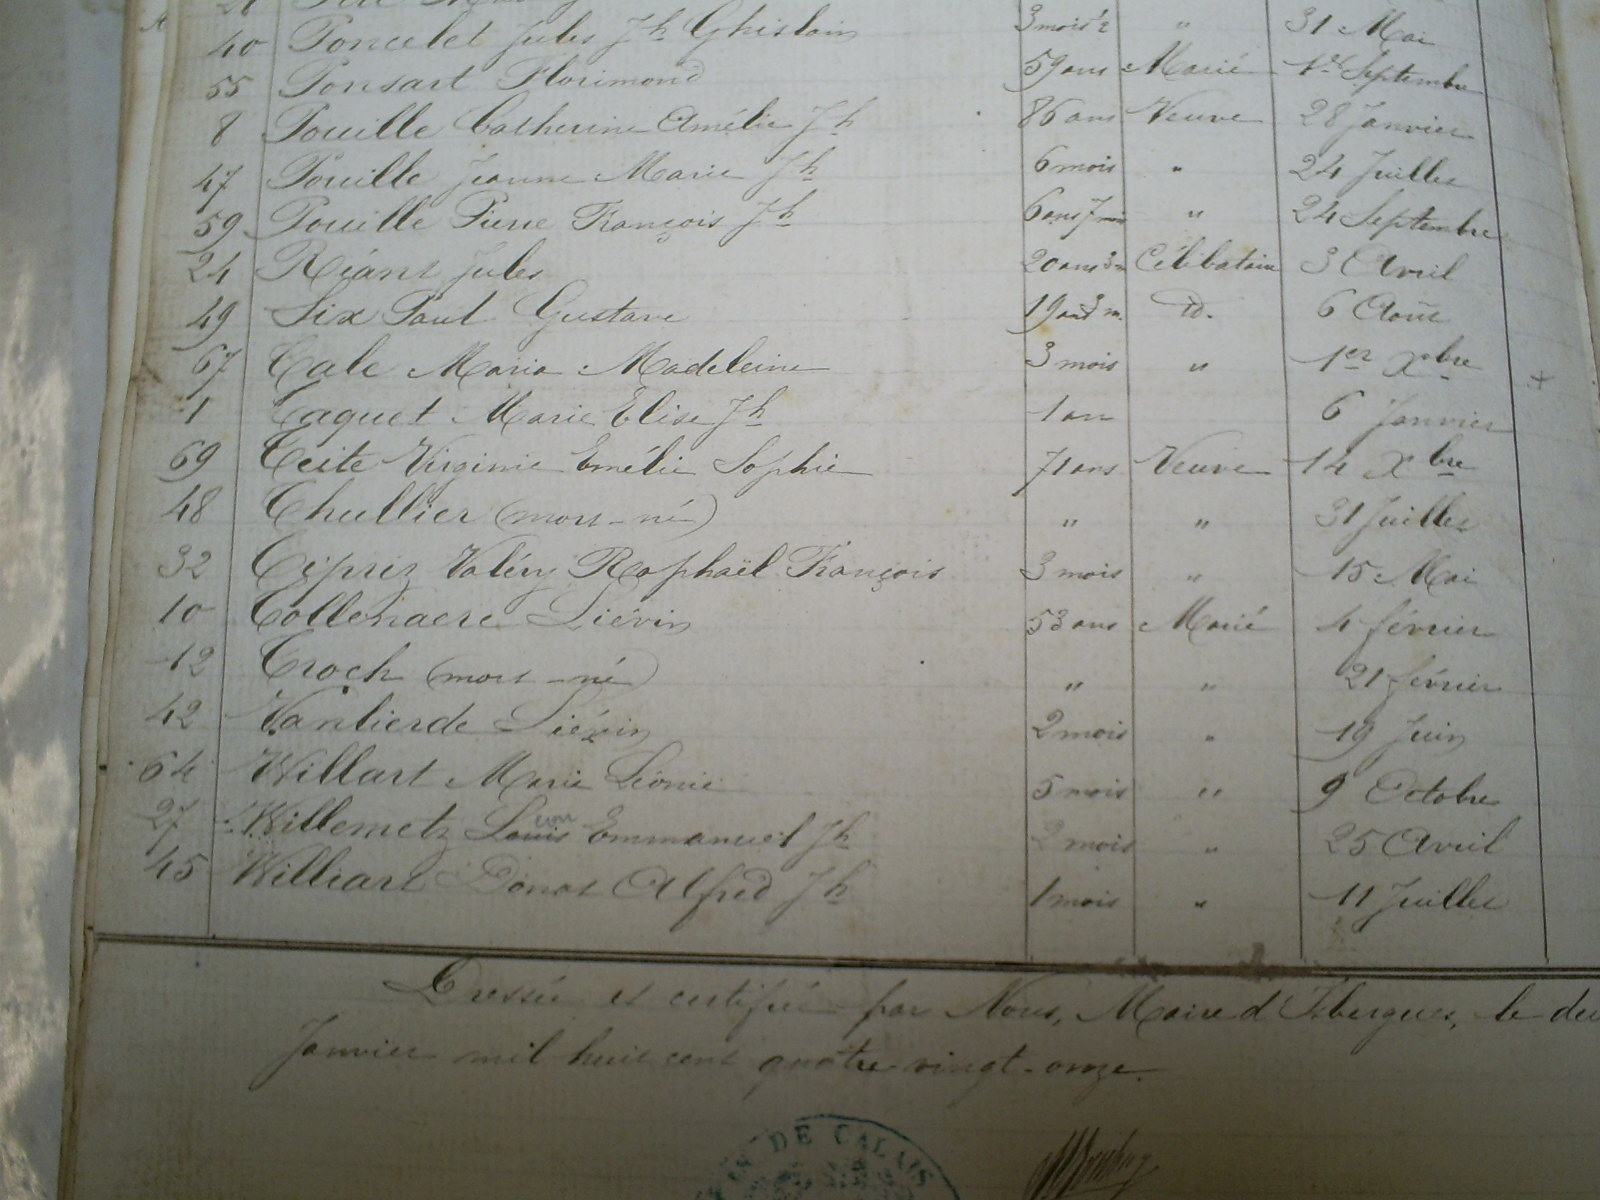 40 Poncelet Jules Jh Ghislain 3 mois ½ " 31 Mai
55 Ponsart Florimond 59 ans Marié 1er Septembre
8 Pouille Catherine Amélie Jh 86 ans Veuve 28 Janvier
47 Pouille Jeanne Marie Jh 6 mois " 24 Juillet
59 Pouille Pierre François Jh 6 ans 7 m " 24 Septembre
24 Riant Jules 20 ans 3 m Célibataire 3 Avril
49 Six Paul Gustave 19 ans 3 m. id. 6 Août
67 Tale Maria Madeleine 3 mois " 1er Xbre
1 Taquet Marie Elise Jh 1 an 6 Janvier
69 Teite Virginie Emélie Sophie 71 ans Veuve 14 Xbre
48 Thullier (mort-né) " " 31 Juillet
32 Tiprez Valéry Raphaël François 3 mois " 15 Mai
10 Tollenaere Liévin 53 ans Marié 4 février
12 Troch (mort-né) " " 21 février
42 Vanlierde Liévin 2 mois " 19 Juin
64 Willart Marie Léonie 5 mois " 9 Octobre
27 Willemetz Louis Emmanuel Jh 2 mois " 25 Avril
45 Williart Donat Alfred Jh 1 mois " 11 Juillet
Dressée et certifiée par Nous, Maire d'Isbergues, le
Janvier mil huit cent quatre vingt-onze.
DE CALAIS